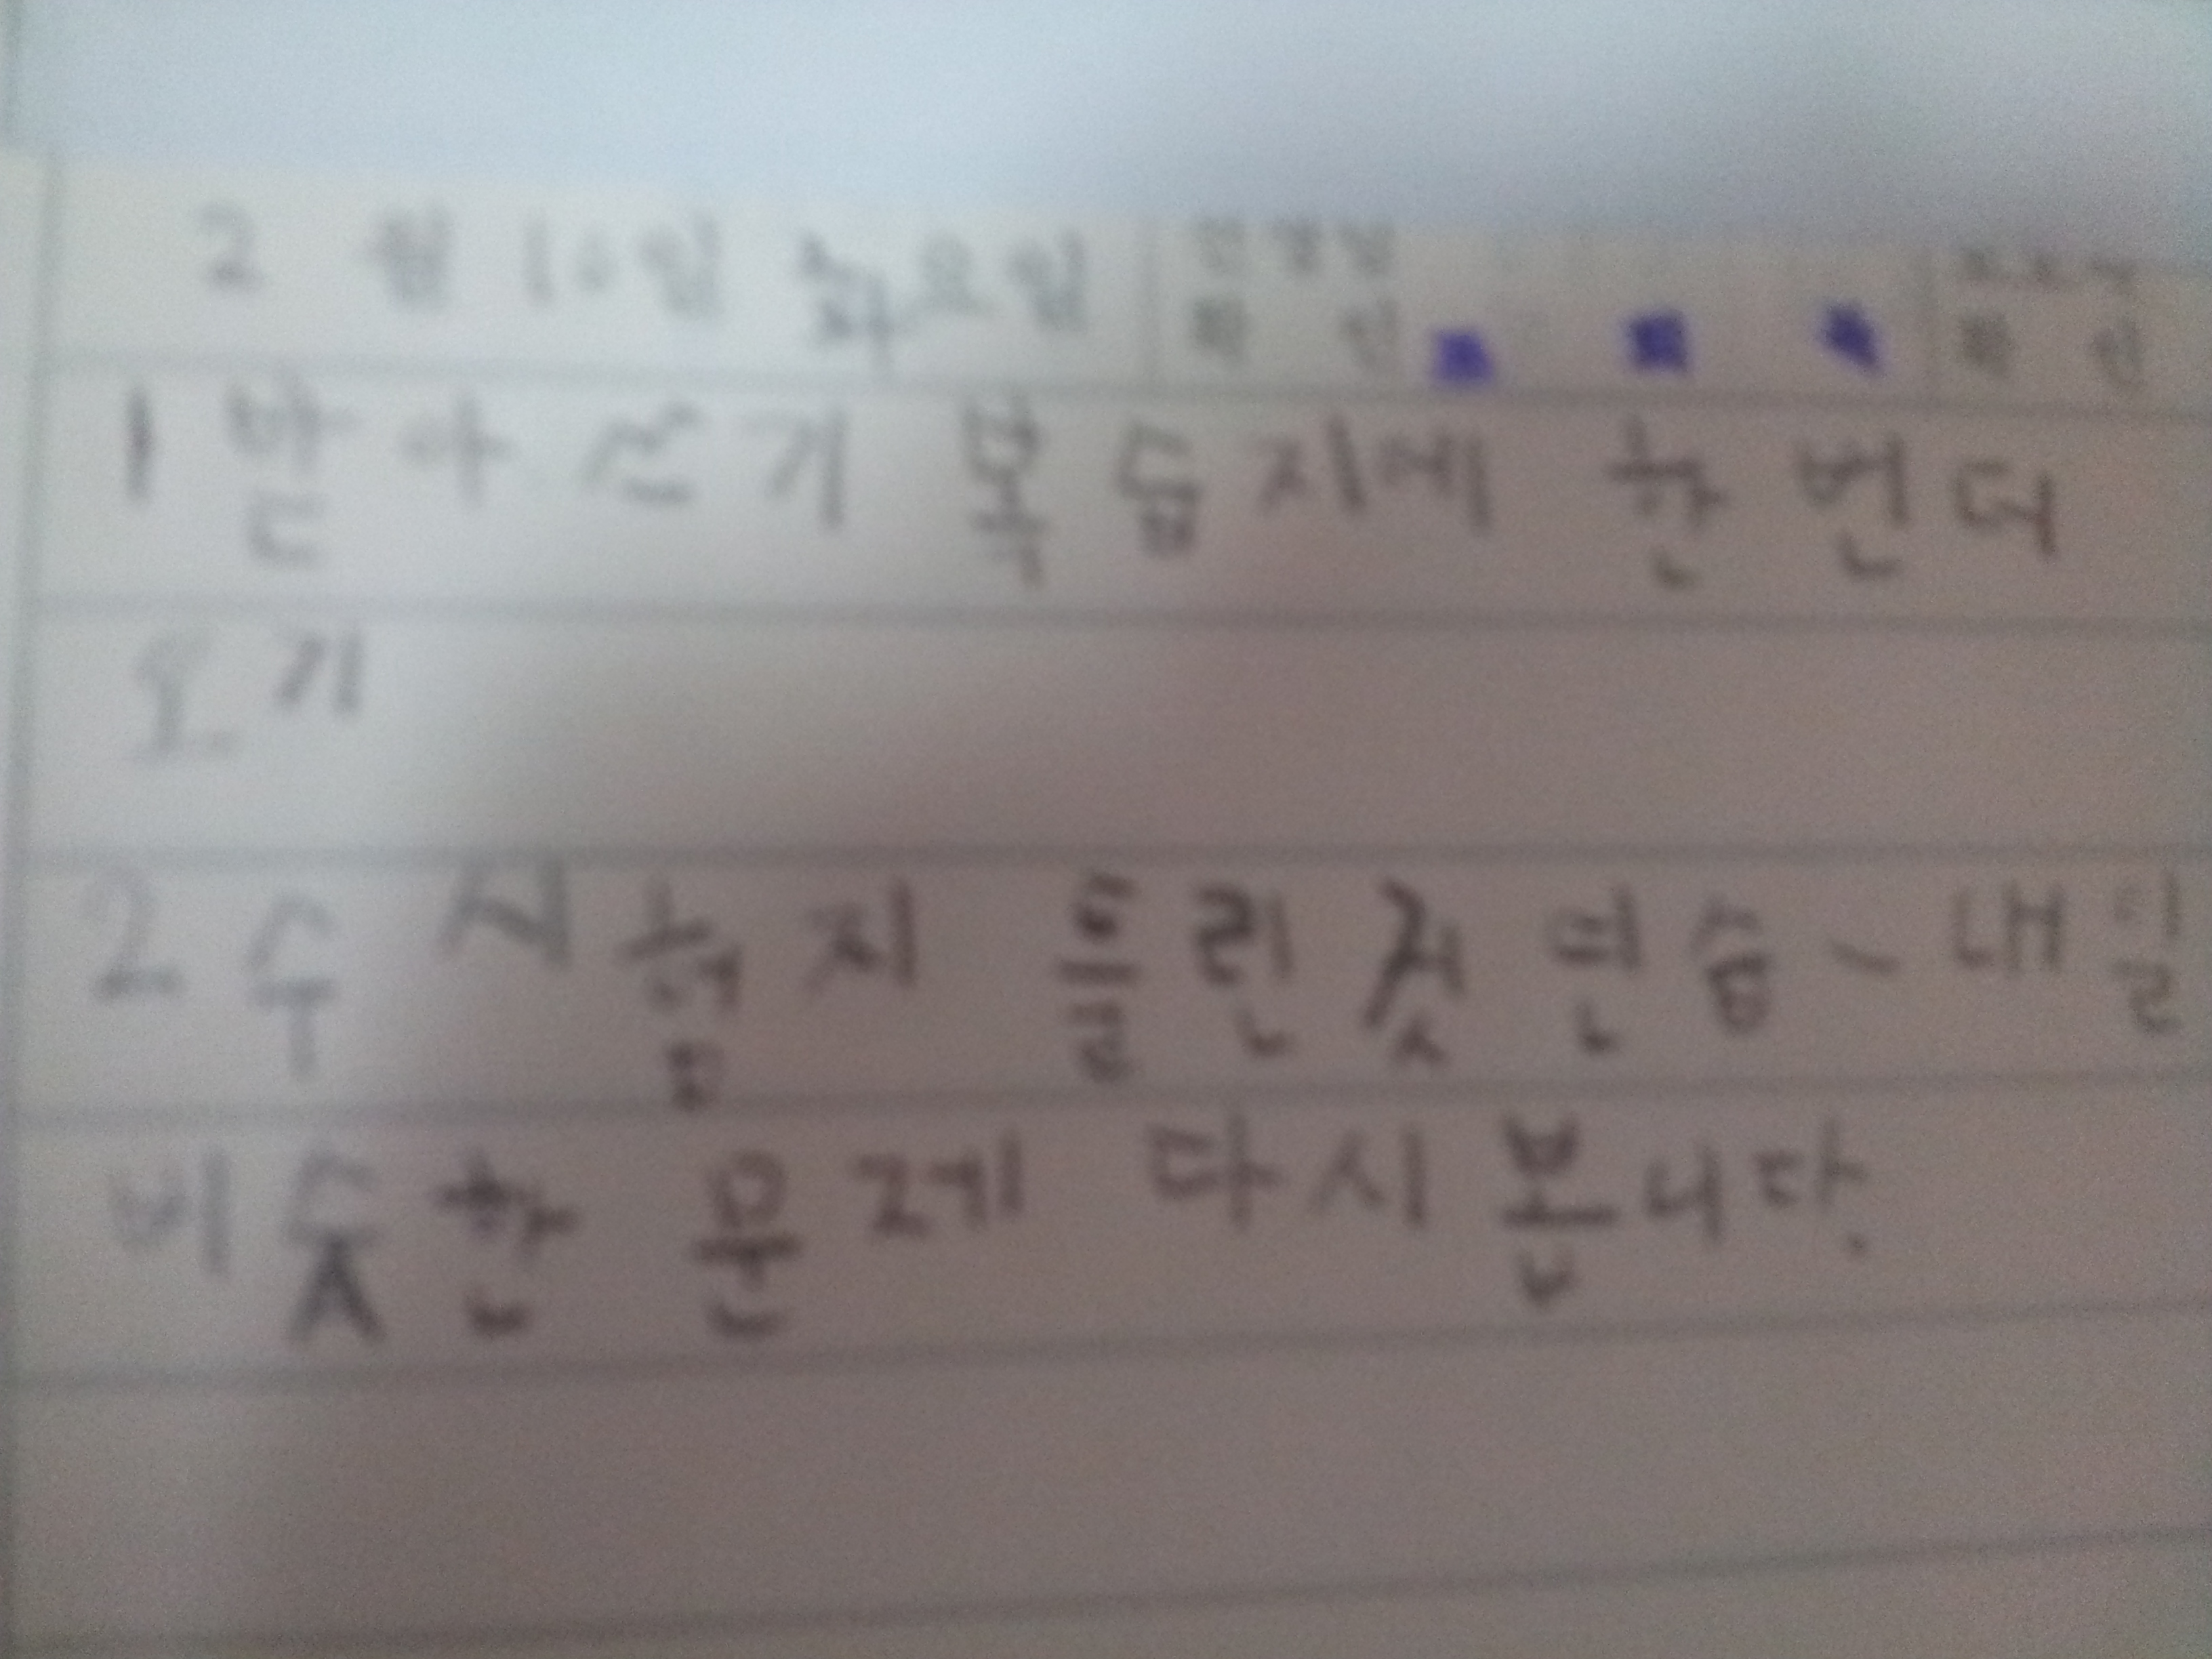 2 월 10일 화요일 선생님 확 인 확 인
1 받아쓰기 복습지에 한 번 더
오기
2 수 시험지 틀린것 연습 - 내일
비슷한 문제 다시 봅니다.